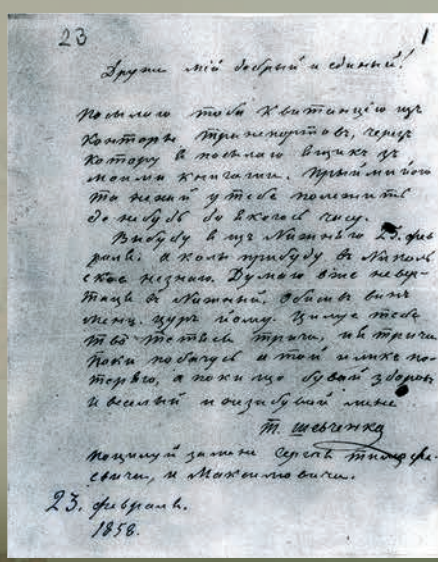 23 1
Друже мій добрый и единый!
посылаю тоби квитанцію изъ
конторы транспортовъ, черезъ
котору я посылаю ящикъ зъ
моими книгами. прыймы його
та нехай у тебе полежить
до
Выбуду я изъ Нижнёго 25. фев
раля. а колы прибуду въ Николь
ское незнаю. Думаю вже невер-
таця въ Нижний,
цуръ йому. Цилую тебе
тричи, и тричи
поки побачусь
а поки що бувай здоровъ
и веселый и незабувай мене
Т. Шевченко
поцилуй за мене Сергея Тимофе-
евича, и Максимовича.
23. февраля.
1858.